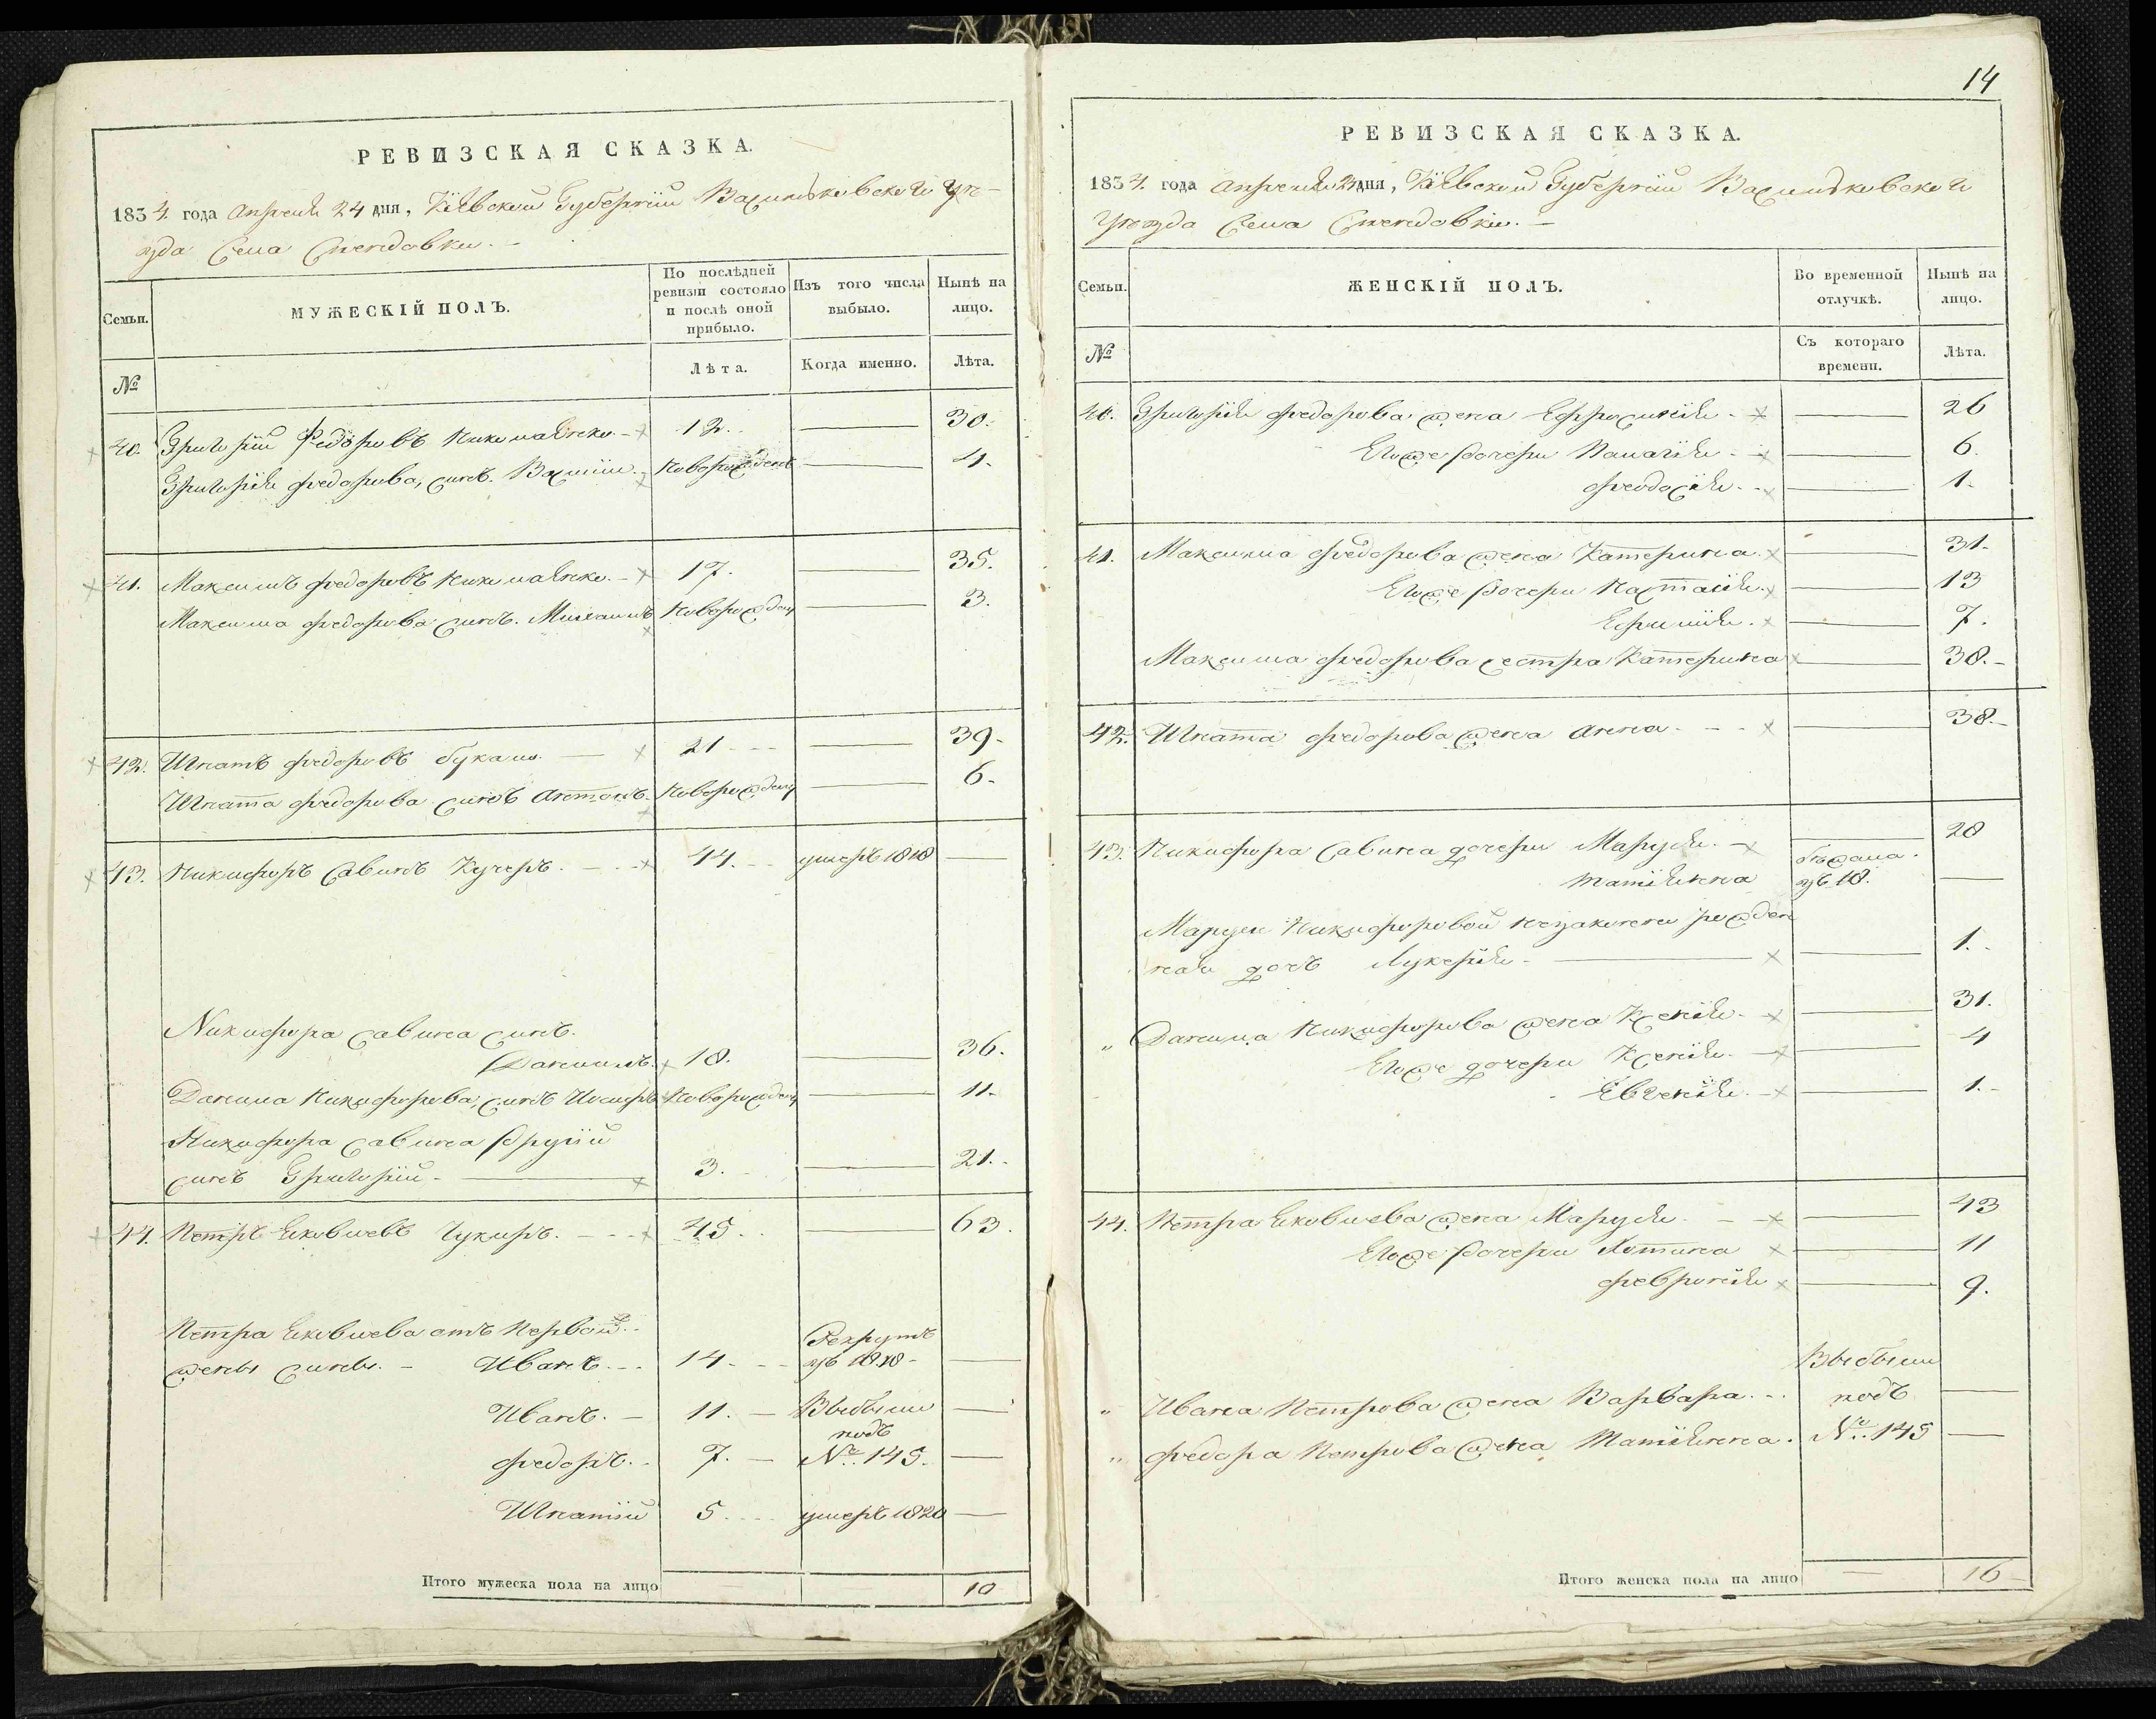 РЕВИЗСКАЯ СКАЗКА.
1834 года Апреля 24 дня, Кіевской Губерніи Васильковскаго Уѣ-
зда Села
Семьи.
МУЖЕСКІЙ ПОЛЪ.
По послѣдней ревизіи состояло и послѣ оной прибыло.
Изъ того числа выбыло.
Нынѣ на лицо.
№
Лѣта.
Когда именно.
Лѣта.
40. Григорій Федоровъ 12. 30.
Григорія Федорова, синъ. Василій новорожденъ 4.
41. Максимъ Федоровъ 17. 35.
Максима Федорова синъ. Михаилъ новорожден 3.
42. Игнатъ Федоровъ 21 39.
Игната Федорова синъ Антонъ. новорожден 6.
43. Никифоръ Савинъ Кучеръ. 44. умеръ 1818
Никифора Савина синъ.
Данилъ. 18. 36.
Данила Никифорова, синъ Иосифъ новорожден 11.
Никифора Савина другій
синъ Григорій 3. 21.
44. Петръ Яковлевъ 45 63.
Петра Яковлева отъ первой
жены сины. Иванъ 14. Рекрутъ въ 1818
Иванъ. 11. Выбыли
подъ
Федоръ. 7. №. 145.
Игнатій 5 умеръ 1820
Итого мужеска пола на лицо 10
14
РЕВИЗСКАЯ СКАЗКА.
1834. года Апреля 24 дня, Кіевской Губерніи Васильковскаго
Уѣзда Села
Семьи.
ЖЕНСКІЙ ПОЛЪ.
Во временной отлучкѣ.
Нынѣ на лицо.
№
Съ котораго времени.
Лѣта.
40. Григорія Федорова жена Ефросинія 26
Егоже дочери Палагія 6.
Феодосія 1.
41. Максима Федорова жена Катерина 31.
Егоже дочери Настасія 13
7.
Максима Федорова сестра Катерина 38.
42. Игната Федорова жена Анна 38.
43. Никифора Савина дочери Маруся. 28
Татіянна бѣжала въ 18.
Маруси Никифоровой незаконно рожден
ная дочь Лукерія 1.
" Данила Никифорова жена Ксенія 31.
Егоже дочери Ксенія. 4
Евгенія. 1.
44. Петра Яковлева жена Маруся 43
Егоже дочери 11
Февронія 9.
Выбыли
" Ивана Петрова жена Варвара. подъ
" Федора Петрова жена Татіянна. №. 145
Итого женска пола на лицо 16